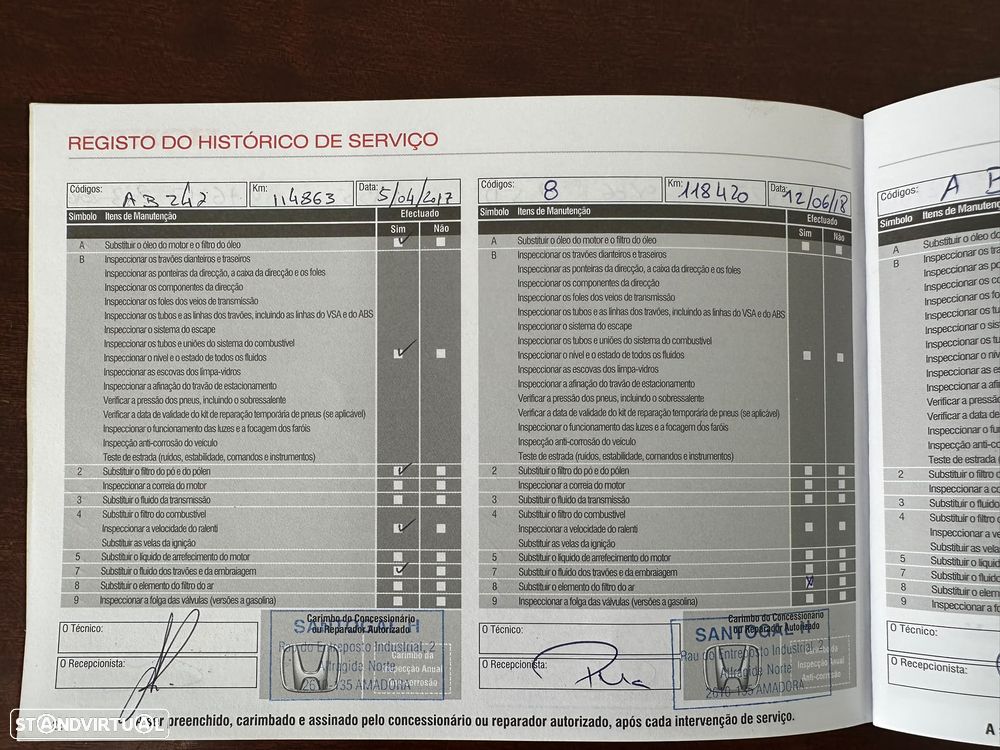 REGISTO DO HISTÓRICO DE SERVIÇO
Códigos: AB 247 Km: 114863 Data: 5/04/2017
Símbolo Itens de Manutenção Efectuado
Sim Não
A Substituir o óleo do motor e o filtro do óleo
B Inspeccionar os travões dianteiros e traseiros
Inspeccionar as ponteiras da direcção, a caixa da direcção e os foles
Inspeccionar os componentes da direcção
Inspeccionar os foles dos veios de transmissão
Inspeccionar os tubos e as linhas dos travões, incluindo as linhas do VSA e do ABS
Inspeccionar o sistema do escape
Inspeccionar os tubos e uniões do sistema do combustível
Inspeccionar o nível e o estado de todos os fluidos
Inspeccionar as escovas dos limpa-vidros
Inspeccionar a afinação do travão de estacionamento
Verificar a pressão dos pneus, incluindo o sobresselente
Verificar a data de validade do kit de reparação temporária de pneus (se aplicável)
Inspeccionar o funcionamento das luzes e a focagem dos faróis
Inspecção anti-corrosão do veículo
Teste de estrada (ruídos, estabilidade, comandos e instrumentos)
2 Substituir o filtro do pó e do pólen
Inspeccionar a correia do motor
3 Substituir o fluido da transmissão
4 Substituir o filtro do combustível
Inspeccionar a velocidade do ralenti
Substituir as velas da ignição
5 Substituir o líquido de arrefecimento do motor
7 Substituir o fluido dos travões e da embraiagem
8 Substituir o elemento do filtro do ar
9 Inspeccionar a folga das válvulas (versões a gasolina)
O Técnico:
O Recepcionista:
Carimbo do Concessionário
ou Reparador Autorizado
SANTOGAL H
Rau do Entreposto Industrial, 2
Alfragide Norte
2610-135 AMADORA
Carimbo da
Inspecção Anual
Anti-corrosão
Códigos: 8 Km: 118420 Data: 12/06/18
Símbolo Itens de Manutenção Efectuado
Sim Não
A Substituir o óleo do motor e o filtro do óleo
B Inspeccionar os travões dianteiros e traseiros
Inspeccionar as ponteiras da direcção, a caixa da direcção e os foles
Inspeccionar os componentes da direcção
Inspeccionar os foles dos veios de transmissão
Inspeccionar os tubos e as linhas dos travões, incluindo as linhas do VSA e do ABS
Inspeccionar o sistema do escape
Inspeccionar os tubos e uniões do sistema do combustível
Inspeccionar o nível e o estado de todos os fluidos
Inspeccionar as escovas dos limpa-vidros
Inspeccionar a afinação do travão de estacionamento
Verificar a pressão dos pneus, incluindo o sobresselente
Verificar a data de validade do kit de reparação temporária de pneus (se aplicável)
Inspeccionar o funcionamento das luzes e a focagem dos faróis
Inspecção anti-corrosão do veículo
Teste de estrada (ruídos, estabilidade, comandos e instrumentos)
2 Substituir o filtro do pó e do pólen
Inspeccionar a correia do motor
3 Substituir o fluido da transmissão
4 Substituir o filtro do combustível
Inspeccionar a velocidade do ralenti
Substituir as velas da ignição
5 Substituir o líquido de arrefecimento do motor
7 Substituir o fluido dos travões e da embraiagem
8 Substituir o elemento do filtro do ar
9 Inspeccionar a folga das válvulas (versões a gasolina)
O Técnico:
O Recepcionista:
Carimbo do Concessionário
ou Reparador Autorizado
SANTOGAL H
Rau do Entreposto Industrial, 2
Alfragide Norte
2610-135 AMADORA
Carimbo da
Inspecção Anual
Anti-corrosão
ser preenchido, carimbado e assinado pelo concessionário ou reparador autorizado, após cada intervenção de serviço.
Códigos: A
Símbolo Itens de
A Substituir o óleo do
B Inspeccionar os
Inspeccionar as
Inspeccionar os
Inspeccionar os
Inspeccionar os
Inspeccionar o
Inspeccionar os
Inspeccionar o
Inspeccionar as
Inspeccionar a
Verificar a
Verificar a data de
Inspeccionar o
Inspecção
Teste de estrada
2 Substituir o filtro
Inspeccionar a
3 Substituir o
4 Substituir o filtro
Inspeccionar a
Substituir as
5 Substituir o
7 Substituir o
8 Substituir o
9 Inspeccionar a
O Técnico:
O Recepcionista:
A
STANDVIRTUAL